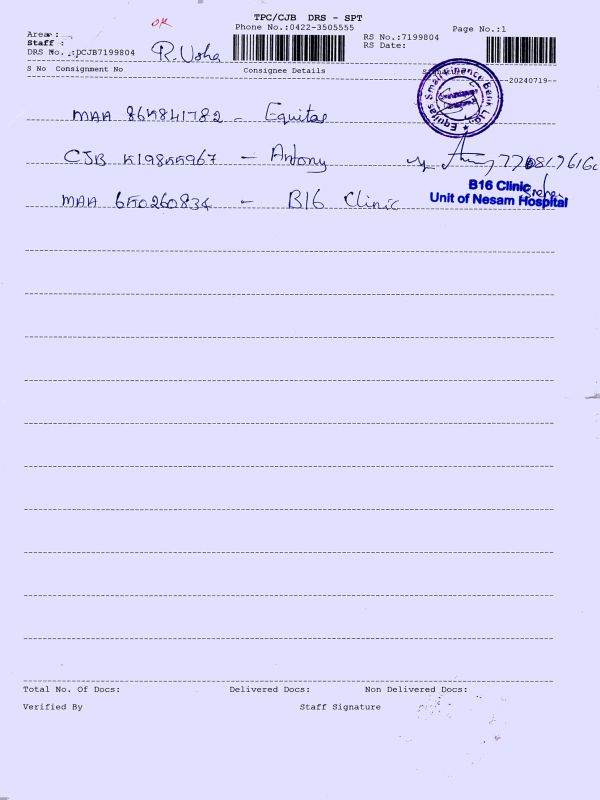 OK
TPC/CJB DRS - SPT
Phone No.:0422-3505555
Page No.:1
Area :
Staff :
DRS No. :DCJB7199804
R. Usha
RS No.:7199804
RS Date:
S No Consignment No Consignee Details
20240719
MAA 865841782 - Equitas
Equitas Small Finance Bank Ltd.
CJB 519855967 - Antony
MAA 650260834 - B16 Clinic
B16 Clinic
Unit of Nesam Hospital
Total No. Of Docs: Delivered Docs: Non Delivered Docs:
Verified By Staff Signature